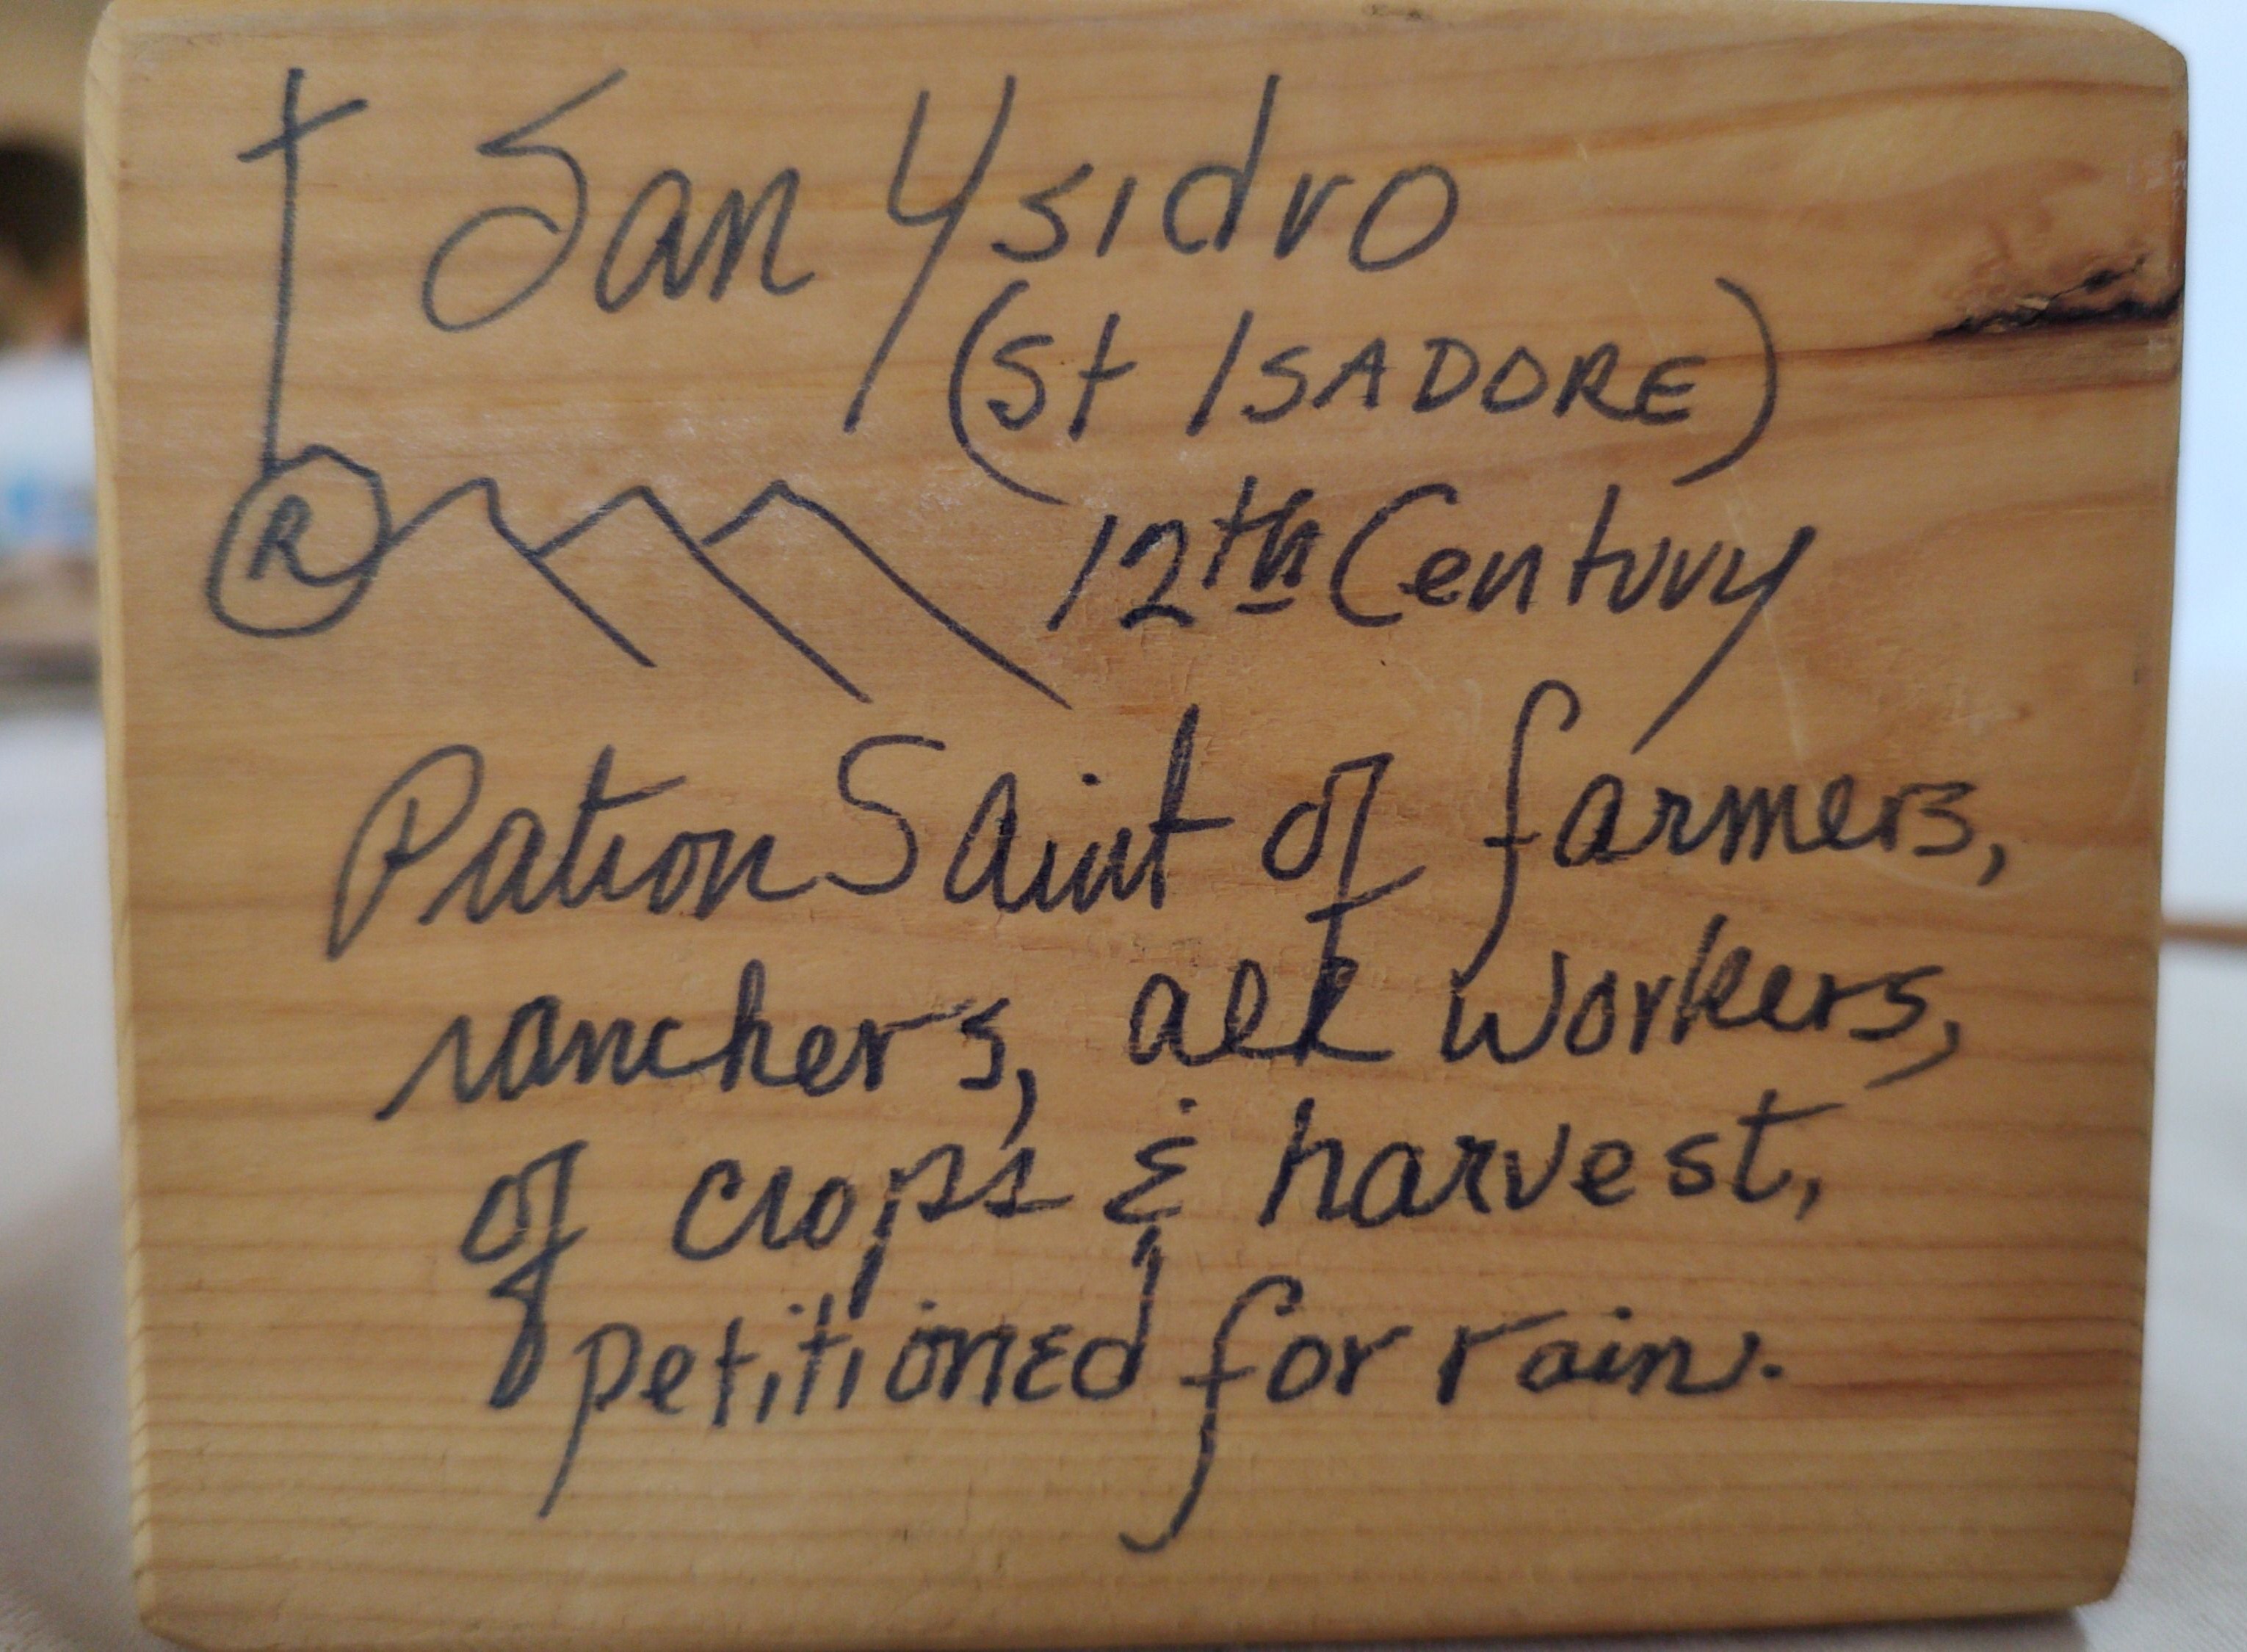 San Ysidro
(St ISADORE)
R
12th Century
Patron Saint of farmers,
ranchers, all workers,
of crops & harvest,
petitioned for rain.